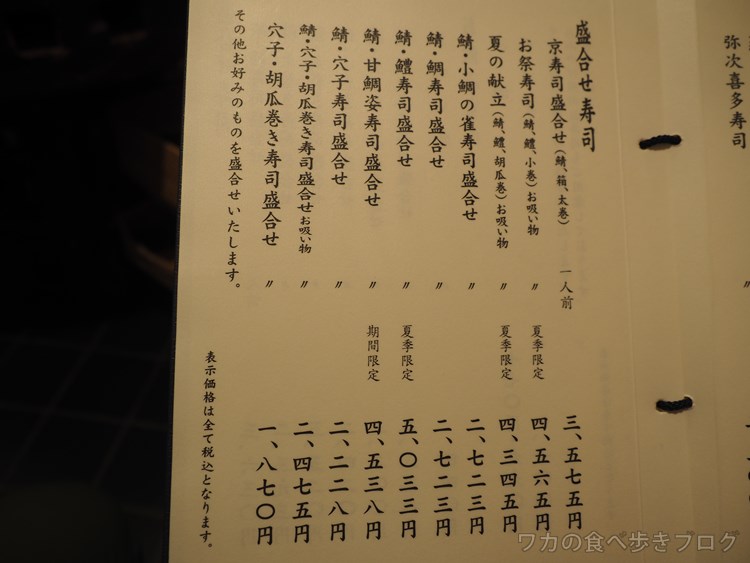 弥次喜多寿司
盛合せ寿司
京寿司盛合せ（鯖、箱、太巻） 一人前 三、五七五円
お祭寿司（鯖、鱧、小巻）お吸い物 〃 夏季限定 四、五六五円
夏の献立（鯖、鱧、胡瓜巻）お吸い物 〃 夏季限定 四、三四五円
鯖・小鯛の雀寿司盛合せ 〃 二、七二三円
鯖・鯛寿司盛合せ 〃 二、七二三円
鯖・鱧寿司盛合せ 〃 夏季限定 五、〇三三円
鯖・甘鯛姿寿司盛合せ 〃 期間限定 四、五三八円
鯖・穴子寿司盛合せ 〃 二、二二八円
鯖・穴子・胡瓜巻き寿司盛合せ お吸い物 〃 二、四七五円
穴子・胡瓜巻き寿司盛合せ 〃 一、八七〇円
その他お好みのものを盛合せいたします。
表示価格は全て税込となります。
ワカの食べ歩きブログ